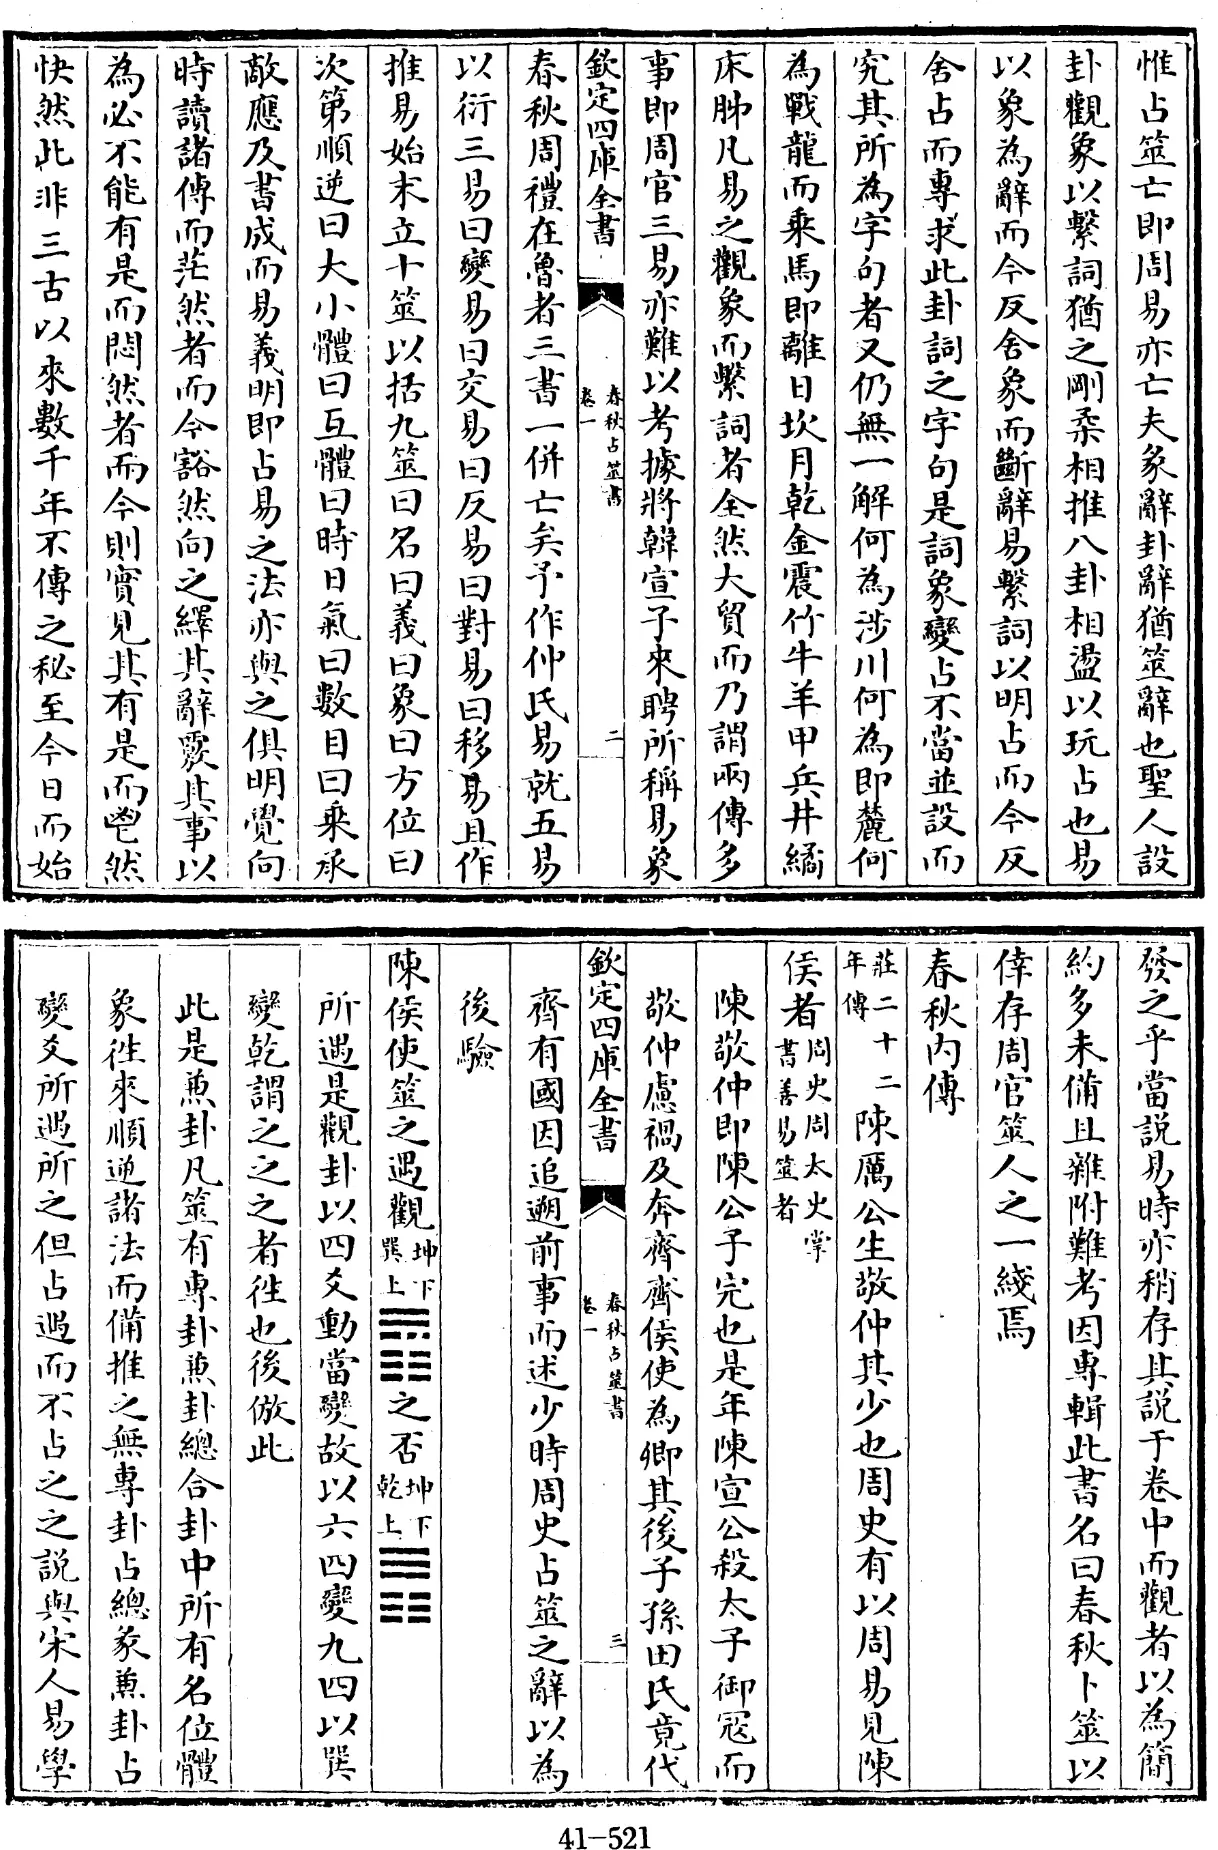 惟占筮亡即周易亦亡夫彖辭卦辭猶筮辭也聖人設
卦觀象以繫詞猶之剛柔相推八卦相盪以玩占也易
以象為辭而今反舍象而斷辭易繫詞以明占而今反
舍占而專求此卦詞之字句是詞象變占不當並設而
究其所為字句者又仍無一解何為涉川何為即麓何
為戰龍而乘馬即離日坎月乾金震竹牛羊甲兵井繘
床胏凡易之觀象而繫詞者全然大貿而乃謂兩傳多
事即周官三易亦難以考據將韓宣子來聘所稱易象
欽定四庫全書
春秋占筮書
卷一
二
春秋周禮在魯者三書一併亡矣予作仲氏易就五易
以衍三易曰變易曰交易曰反易曰對易曰移易且作
推易始末立十筮以括九筮曰名曰義曰象曰方位曰
次第順逆曰大小體曰互體曰時日氣曰數目曰乘承
敵應及書成而易義明即占易之法亦與之俱明覺向
時讀諸傳而茫然者而今豁然向之繹其辭覈其事以
為必不能有是而悶然者而今則實見其有是而鬯然
快然此非三古以來數千年不傳之秘至今日而始
發之乎當説易時亦稍存其説于卷中而觀者以為簡
約多未備且雜附難考因專輯此書名曰春秋卜筮以
倖存周官筮人之一綫焉
春秋内傳
莊二十二年傳陳厲公生敬仲其少也周史有以周易見陳
侯者周史周太史掌書善易筮者
陳敬仲即陳公子完也是年陳宣公殺太子御冦而
敬仲慮禍及奔齊齊侯使為卿其後子孫田氏竟代
欽定四庫全書
春秋占筮書
卷一
三
齊有國因追遡前事而述少時周史占筮之辭以為
後驗
陳侯使筮之遇觀坤下巽上之否坤下乾上
所遇是觀卦以四爻動當變故以六四變九四以巽
變乾謂之之之者往也後倣此
此是兼卦凡筮有專卦兼卦總合卦中所有名位體
象往來順逆諸法而備推之無專卦占總彖兼卦占
變爻所遇所之但占遇而不占之之説與宋人易學
41-521